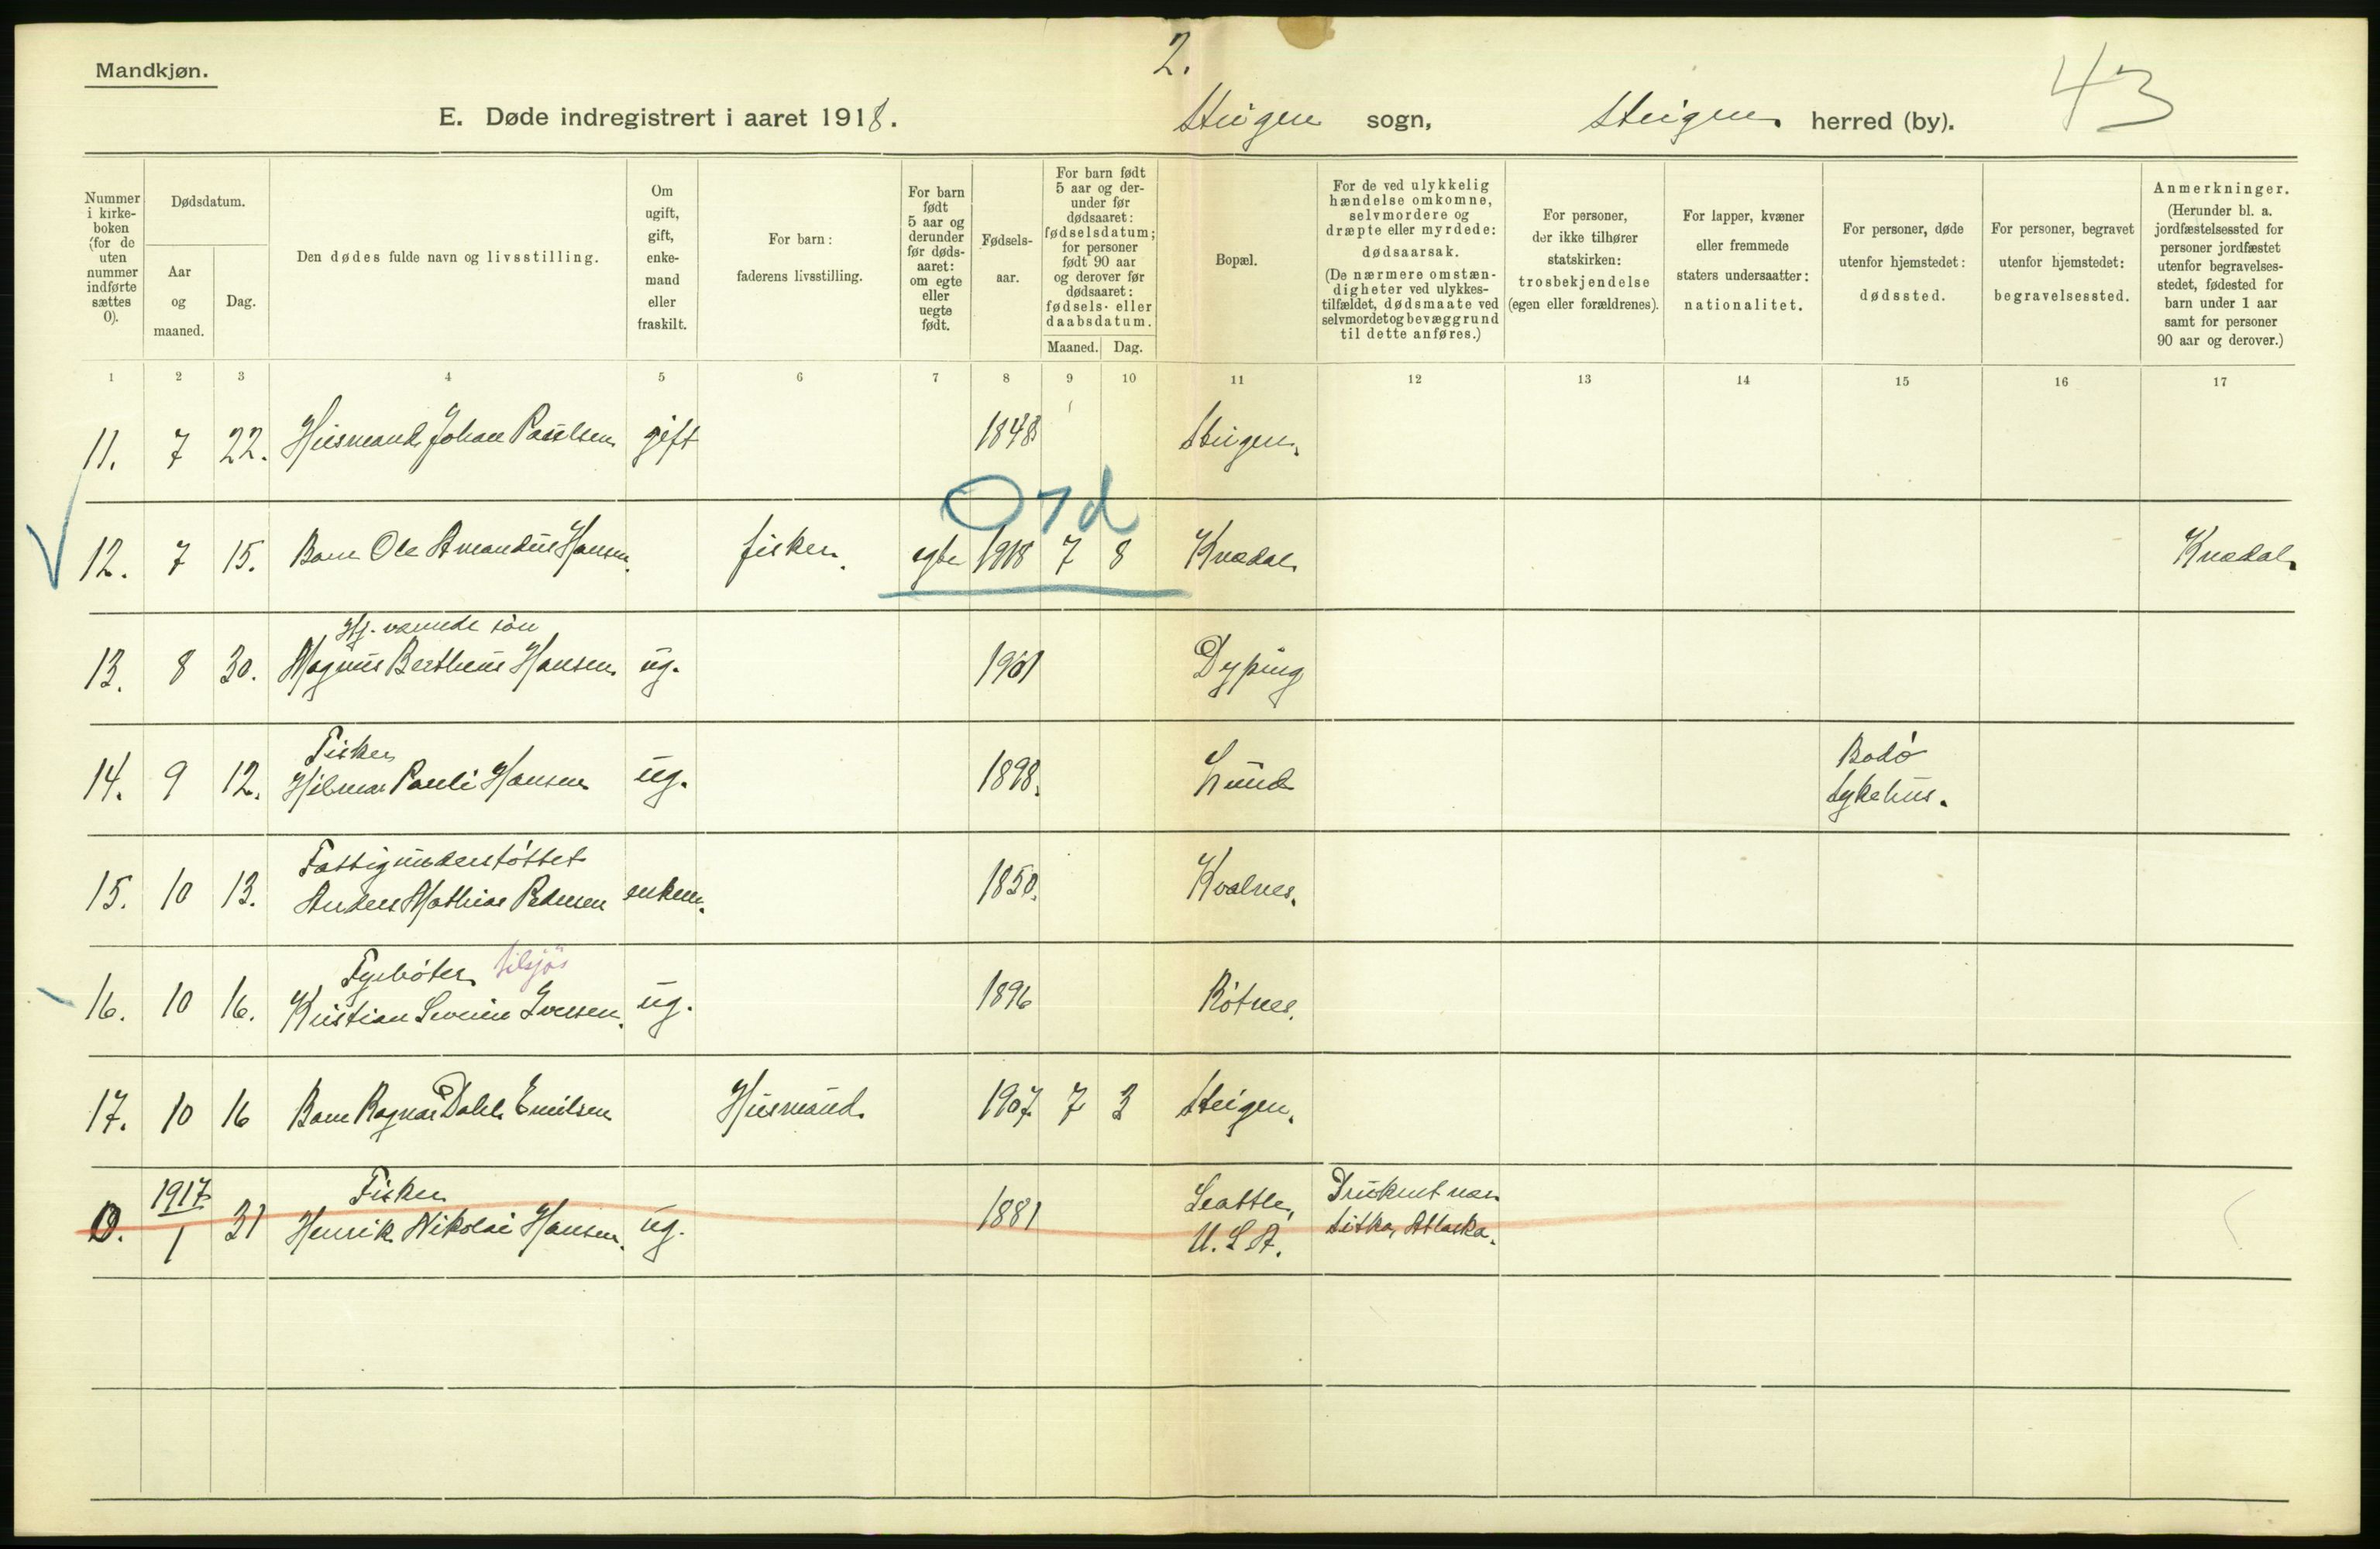 2.
43
Mandkjøn.
E. Døde indregistrert i aaret 1918. Steigen sogn, Steigen herred (by).
Nummer i kirke-boken (for de uten nummer indførte sættes 0).
Dødsdatum.
Aar og maaned.
Dag.
Den dødes fulde navn og livsstilling.
Om ugift, gift, enke-mand eller fraskilt.
For barn: faderens livsstilling.
For barn født 5 aar og derunder før døds-aaret: om egte eller uegte født.
Fødsels-aar.
For barn født 5 aar og der-under før dødsaaret: fødselsdatum; for personer født 90 aar og derover før dødsaaret: fødsels- eller daabsdatum.
Maaned. Dag.
Bopæl.
For de ved ulykkelig hændelse omkomne, selvmordere og dræpte eller myrdede: dødsaarsak. (De nærmere omstæn-digheter ved ulykkes-tilfældet, dødsmaate ved selvmordet og bevæggrund til dette anføres.)
For personer, der ikke tilhører statskirken: trosbekjendelse (egen eller forældrenes).
For lapper, kvæner eller fremmede staters undersaatter: nationalitet.
For personer, døde utenfor hjemstedet: dødssted.
For personer, begravet utenfor hjemstedet: begravelsessted.
Anmerkninger. (Herunder bl. a. jordfæstelsessted for personer jordfæstet utenfor begravelses-stedet, fødested for barn under 1 aar samt for personer 90 aar og derover.)
1 2 3 4 5 6 7 8 9 10 11 12 13 14 15 16 17
11. 7 22. Husmand Johan Paulsen gift 1848 Steigen.
Ord
12. 7 15. Barn Ole Amandus Hansen. fisker. egte 1918 7 8 Knædal Knædal.
Hj. værende søn
13. 8 30. Magnus Bertheus Hansen ug. 1901 Dyping
Fisker
14. 9 12. Hilmar Pauli Hansen ug. 1898. Lund Bodø sykehus.
Fattigunderstøttet
15. 10 13. Anders Mathias Pedersen enkem. 1850. Kvalnes.
Fyrbøter tilsjøs
16. 10 16. Kristian Severin Iversen. ug. 1896 Røtnes.
17. 10 16 Barn Ragnar Dahl Emilsen Husmand. 1907 7 3 Steigen.
1917 Fisker Seattle, Druknet nær
0. 1 31 Henrik Nikolai Hansen. ug. 1881 U.S.A. Sitka, Atlaska.